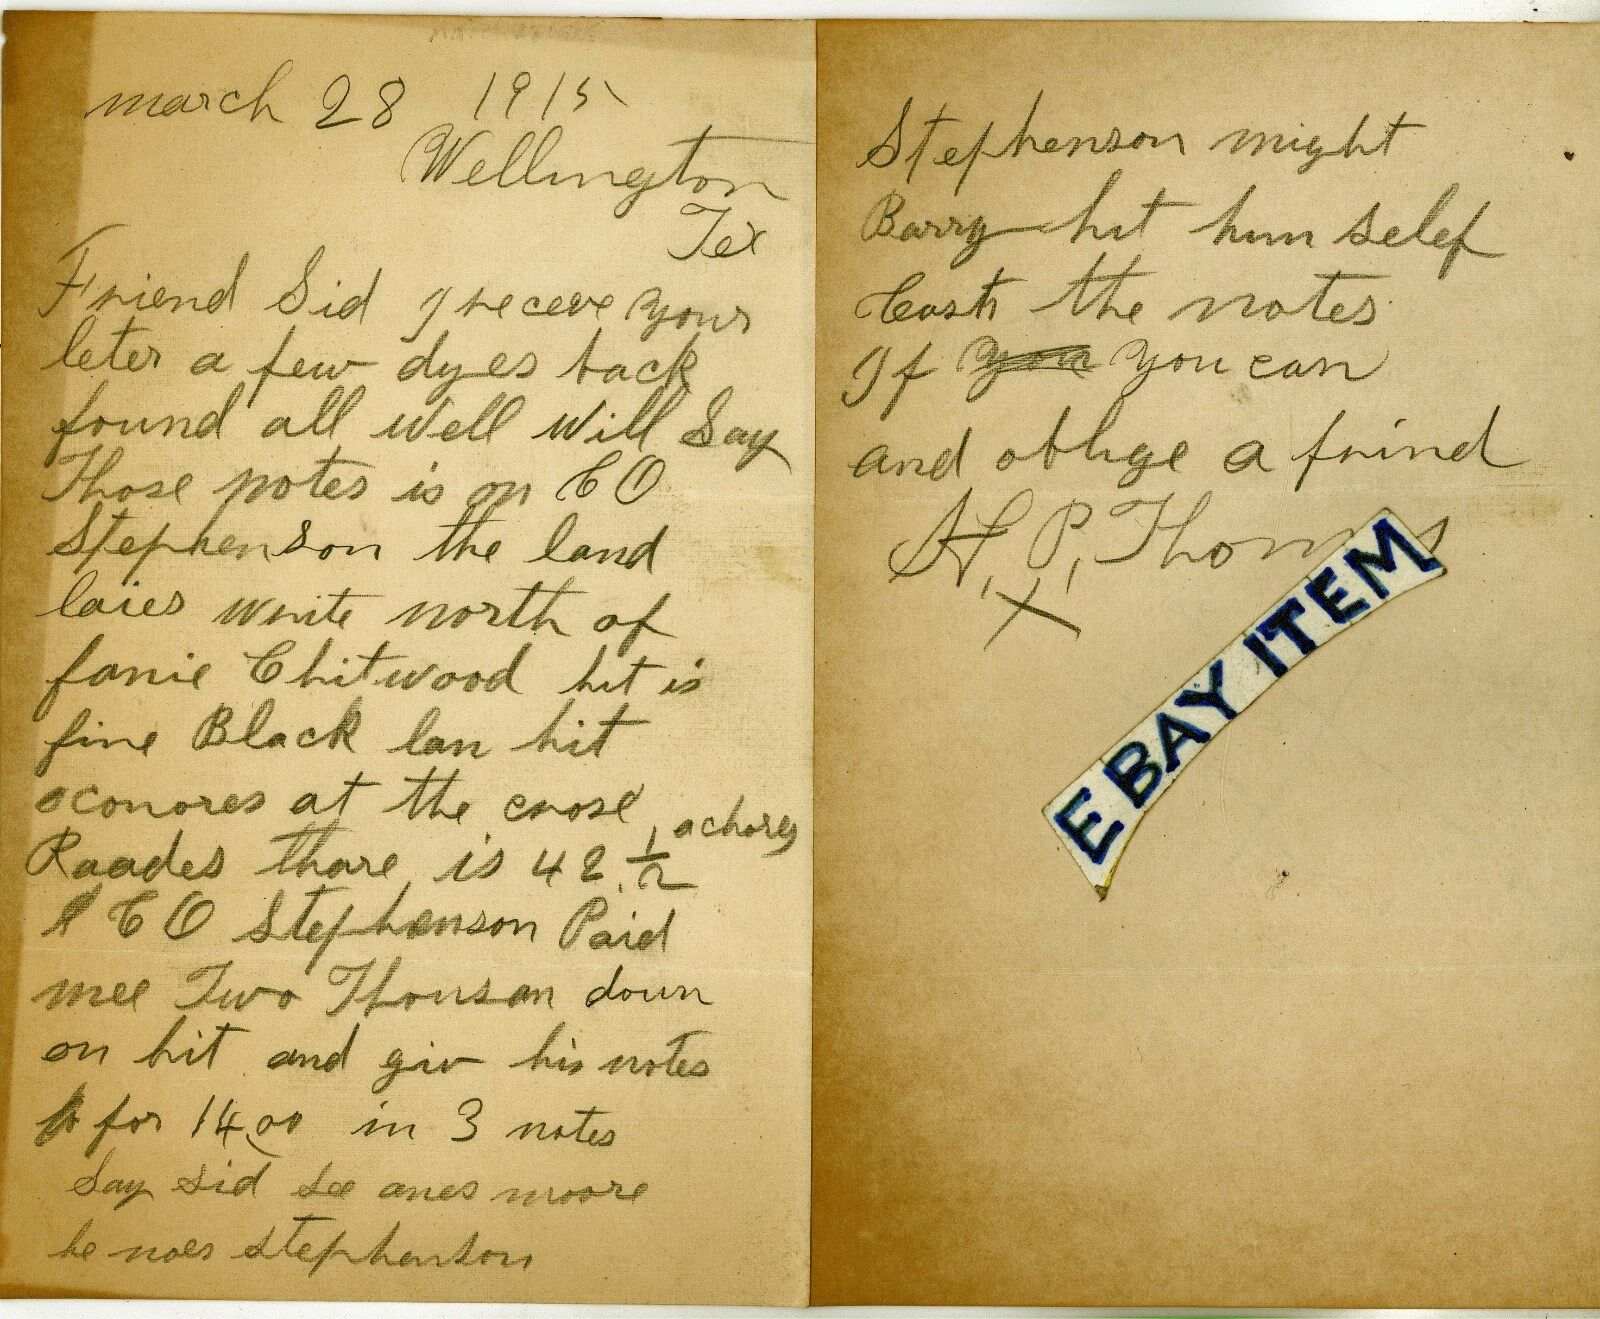 march 28 1915
Wellington
Tex
Friend Sid I receve your
leter a few dyes back
found all well will Say
Those notes is on C O
Stephenson the land
laies write north of
fanie Chitwood hit is
fine Black lan hit
conores at the crose
Raades thare is 42 1/2 achores
C O Stephenson Paid
mee Two Thousan down
on hit and giv his notes
for 14,00 in 3 notes
Say Sid See anes moore
he noes Stephenson
Stephenson might
Barry hit him selef
Cash the notes
If you you can
and oblige a frind
H. P. Thom s
X
EBAY ITEM